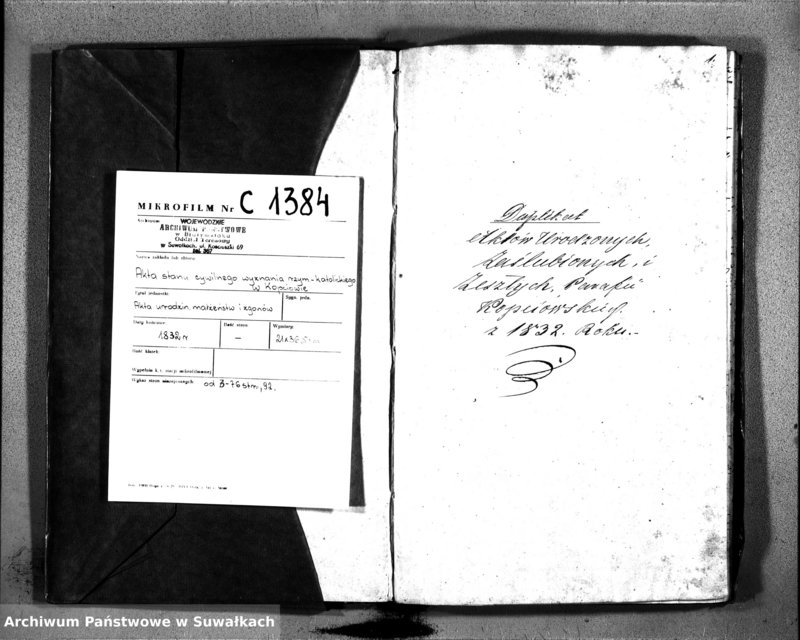 MIKROFILM Nr C 1384
Archiwum
WOJEWÓDZKIE
ARCHIWUM PAŃSTWOWE
w Białymstoku
Oddział Terenowy
w Suwałkach, ul. Kościuszki 69
Nazwa zespołu lub zbioru
Akta stanu cywilnego wyznania rzym-katolickiego
w Kopciowie
Tytuł jednostki
Sygn. jedn.
Akta urodzin małżeństw i zgonów
Daty krańcowe
Ilość stron
Wymiary
1832 r
–
21x36,5
Ilość klatek
Wypełnia k.t. stacji mikrofilmowej
Wykaz stron niezapisanych od 3-76 stm, 92.
1.
Duplikat
Aktów Urodzonych,
Zaślubionych, i
Zeszłych, Parafii
Kopciowskiey.
z 1832. Roku.-
Archiwum Państwowe w Suwałkach